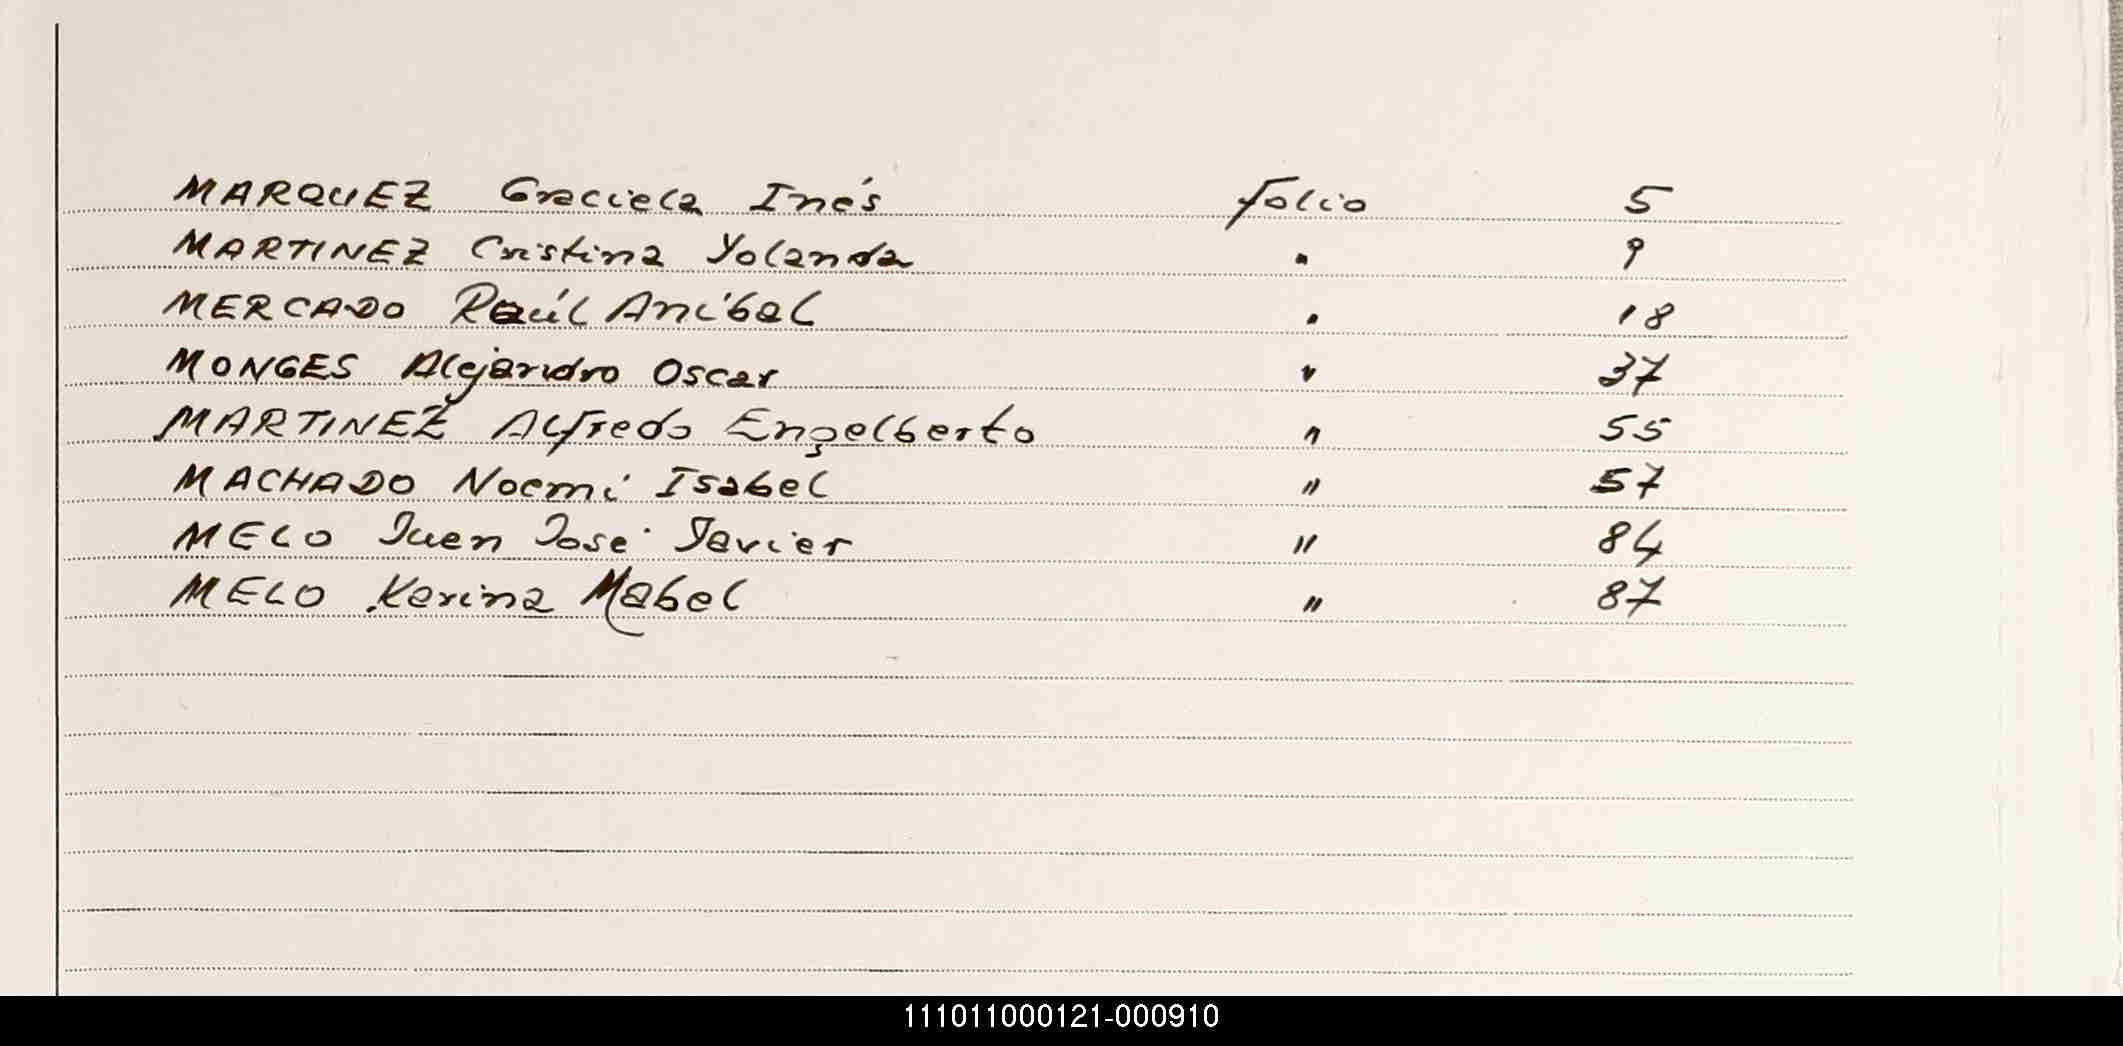 MARQUEZ Graciela Inés folio 5
MARTINEZ Cristina Yolanda " 9
MERCADO Raúl Aníbal " 18
MONGES Alejandro Oscar " 37
MARTINEZ Alfredo Engelberto " 55
MACHADO Noemí Isabel " 57
MELO Juan José Javier " 84
MELO Karina Mabel " 87
111011000121-000910